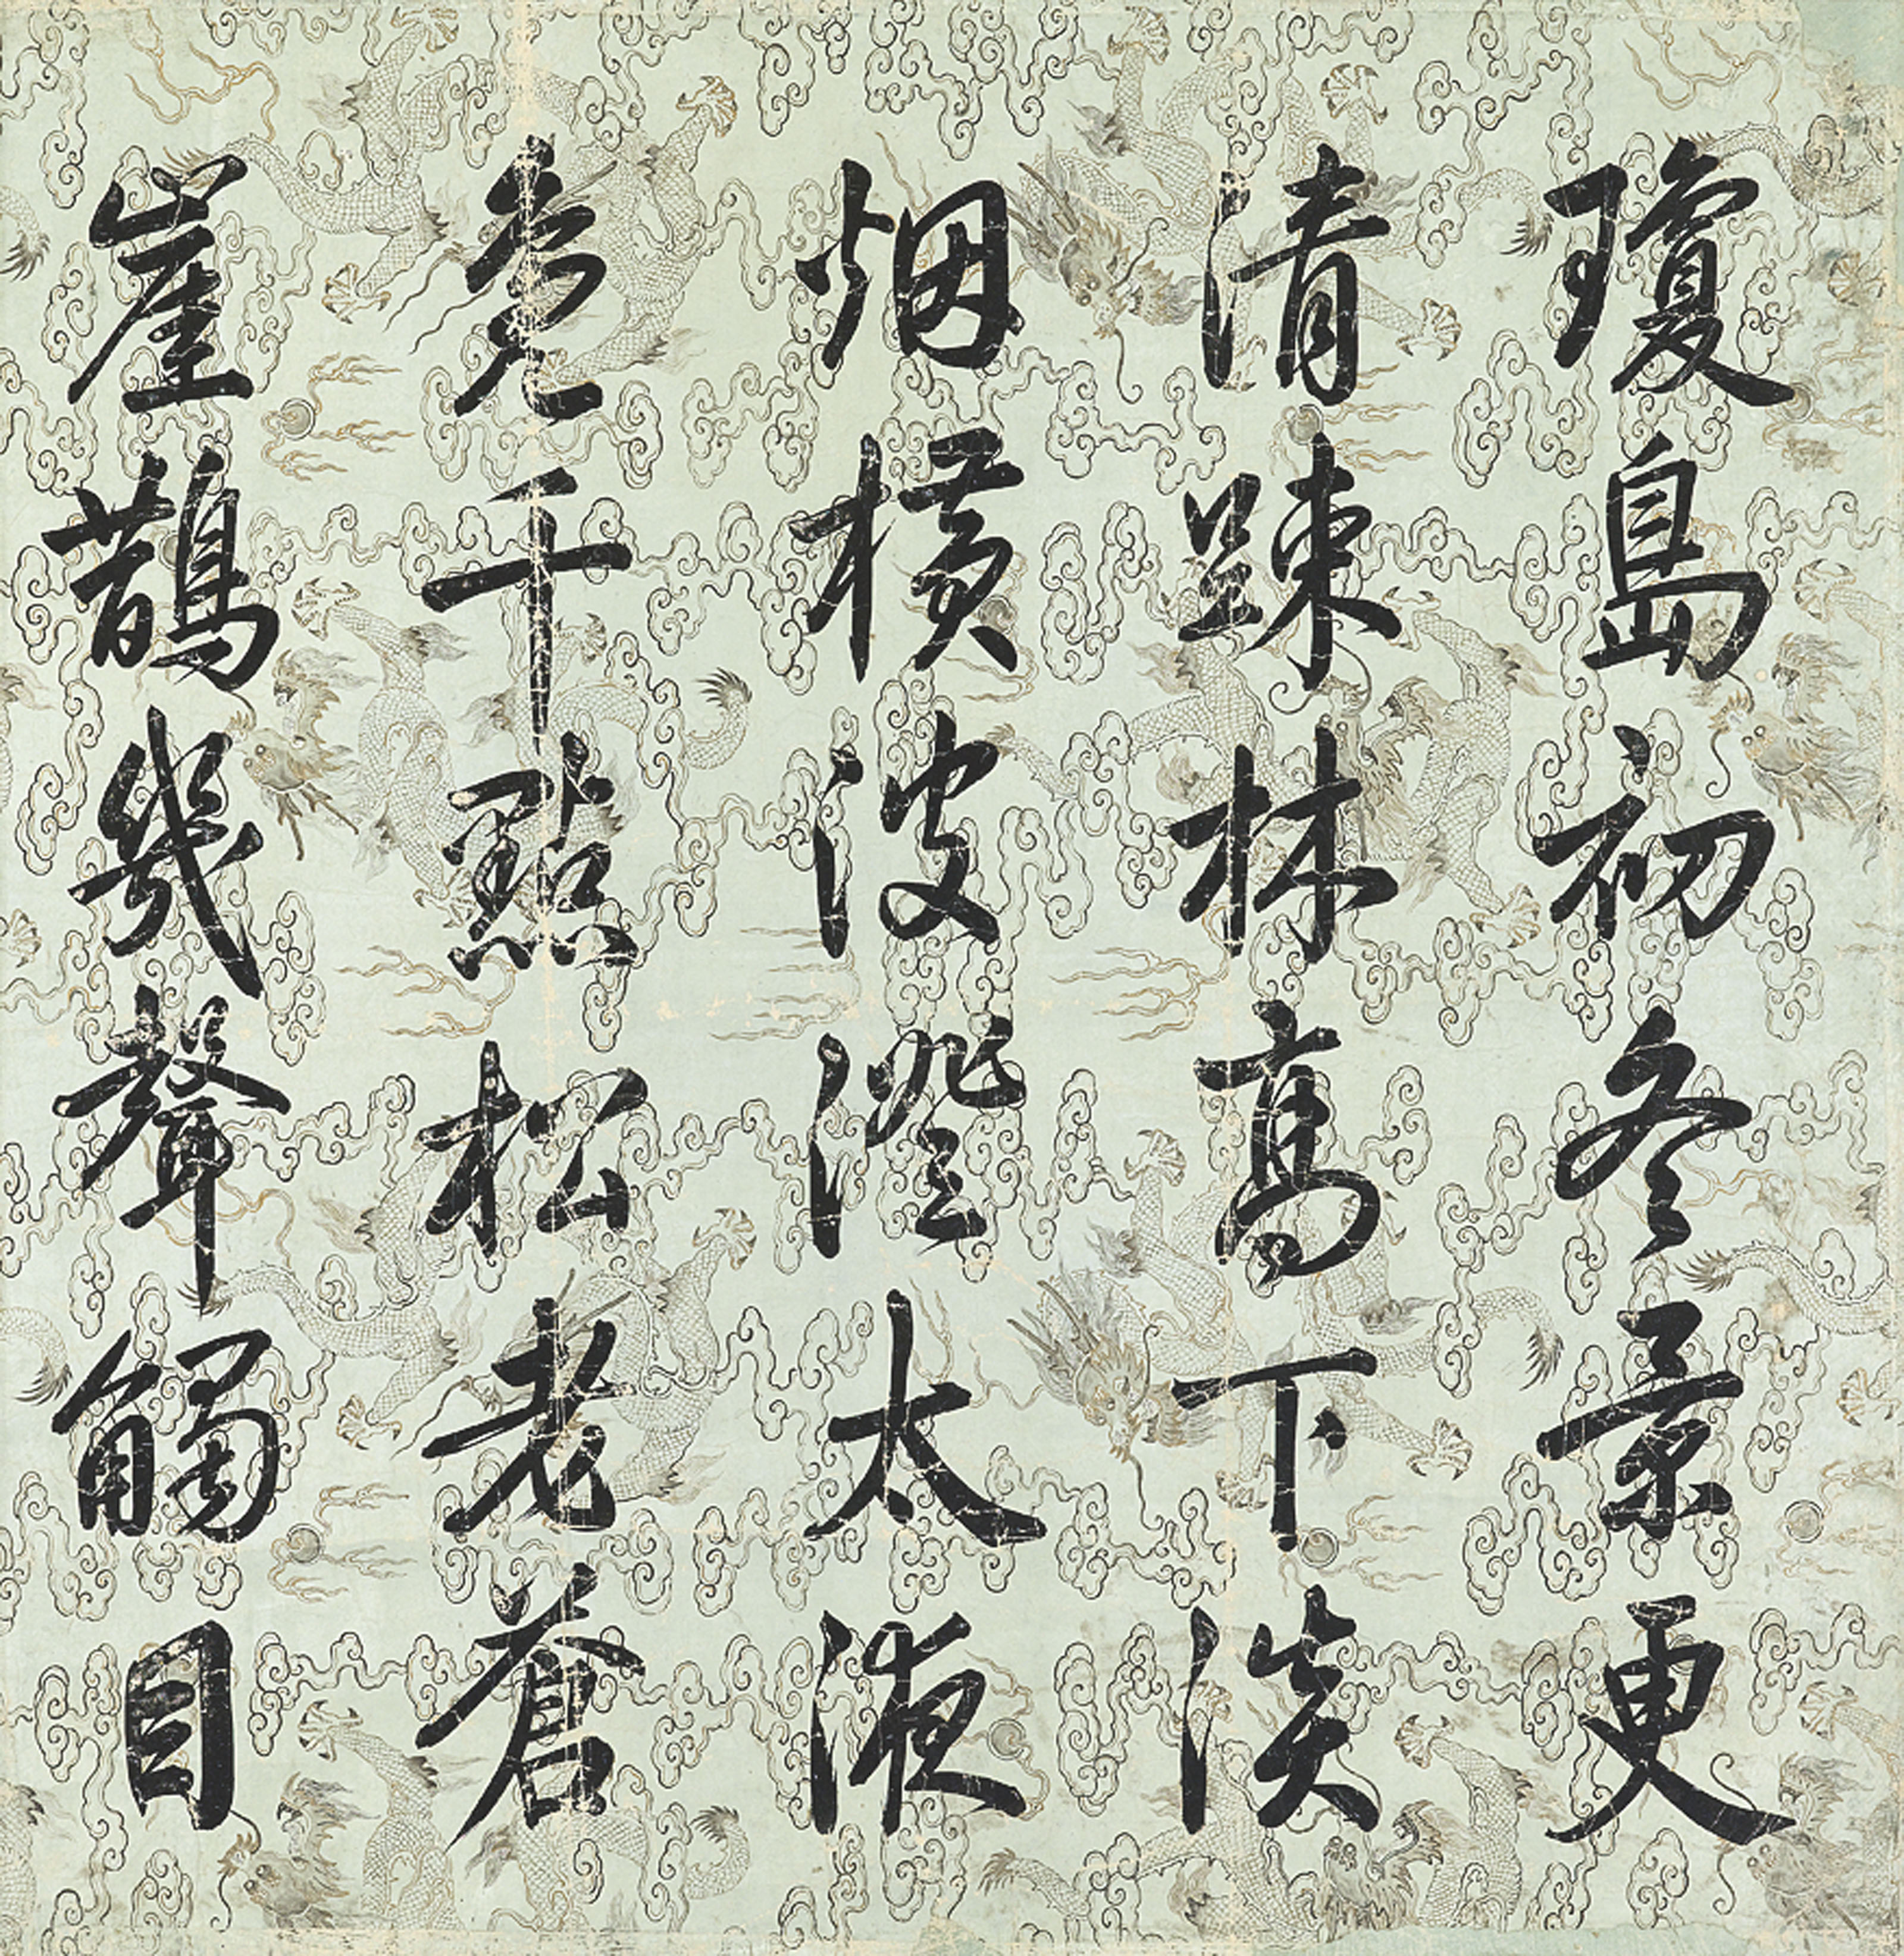 瓊島初冬景更
清踈林高下淡
烟橫波澄太液
鳧千點松老蒼
崖鵲幾聲觸目